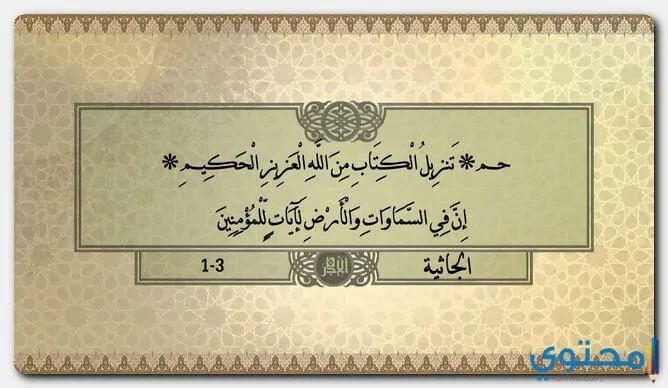 حم * تَنزِيلُ الْكِتَابِ مِنَ اللَّهِ الْعَزِيزِ الْحَكِيمِ *
إِنَّ فِي السَّمَاوَاتِ وَالْأَرْضِ لَآيَاتٍ لِّلْمُؤْمِنِينَ
الجاثية
1-3
محتوي